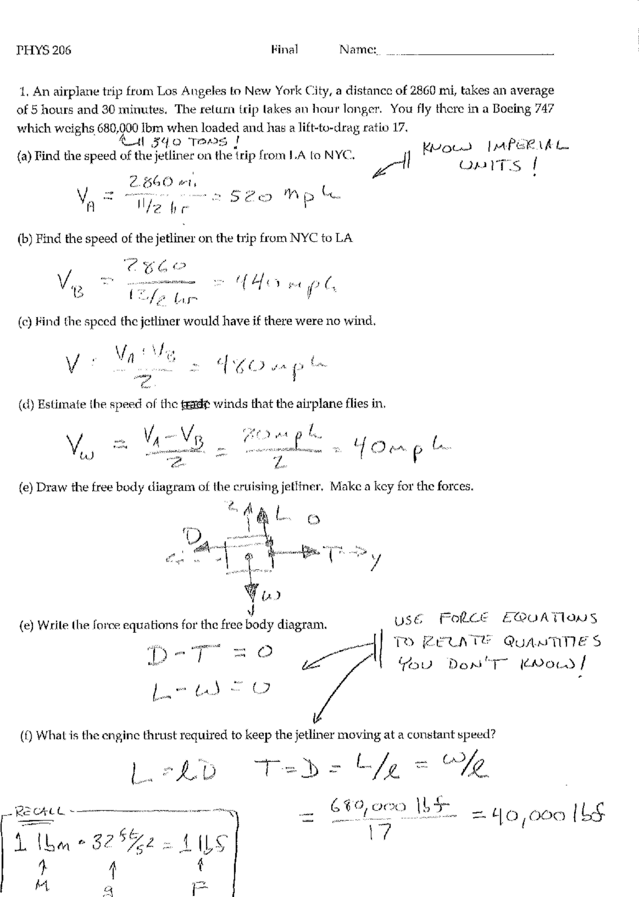 PHYS 206 Final Name:
1. An airplane trip from Los Angeles to New York City, a distance of 2860 mi, takes an average
of 5 hours and 30 minutes. The return trip takes an hour longer. You fly there in a Boeing 747
which weighs 680,000 lbm when loaded and has a lift-to-drag ratio 17.
340 TONS!
KNOW IMPERIAL
UNITS!
(a) Find the speed of the jetliner on the trip from LA to NYC.
V_A = 2860 mi / 11/2 hr = 520 mph
(b) Find the speed of the jetliner on the trip from NYC to LA
V_B = 2860 / 13/2 hr = 440 mph
(c) Find the speed the jetliner would have if there were no wind.
V = V_A + V_B / 2 = 480 mph
(d) Estimate the speed of the trade winds that the airplane flies in.
V_w = V_A - V_B / 2 = 80 mph / 2 = 40 mph
(e) Draw the free body diagram of the cruising jetliner. Make a key for the forces.
z L
D T y
w
(e) Write the force equations for the free body diagram.
USE FORCE EQUATIONS
TO RELATE QUANTITIES
YOU DON'T KNOW!
D - T = 0
L - w = 0
(f) What is the engine thrust required to keep the jetliner moving at a constant speed?
L = ℓD T = D = L/ℓ = w/ℓ
= 680,000 lbf / 17 = 40,000 lbf
RECALL
1 lbm • 32 ft/s² = 1 lbf
M g F